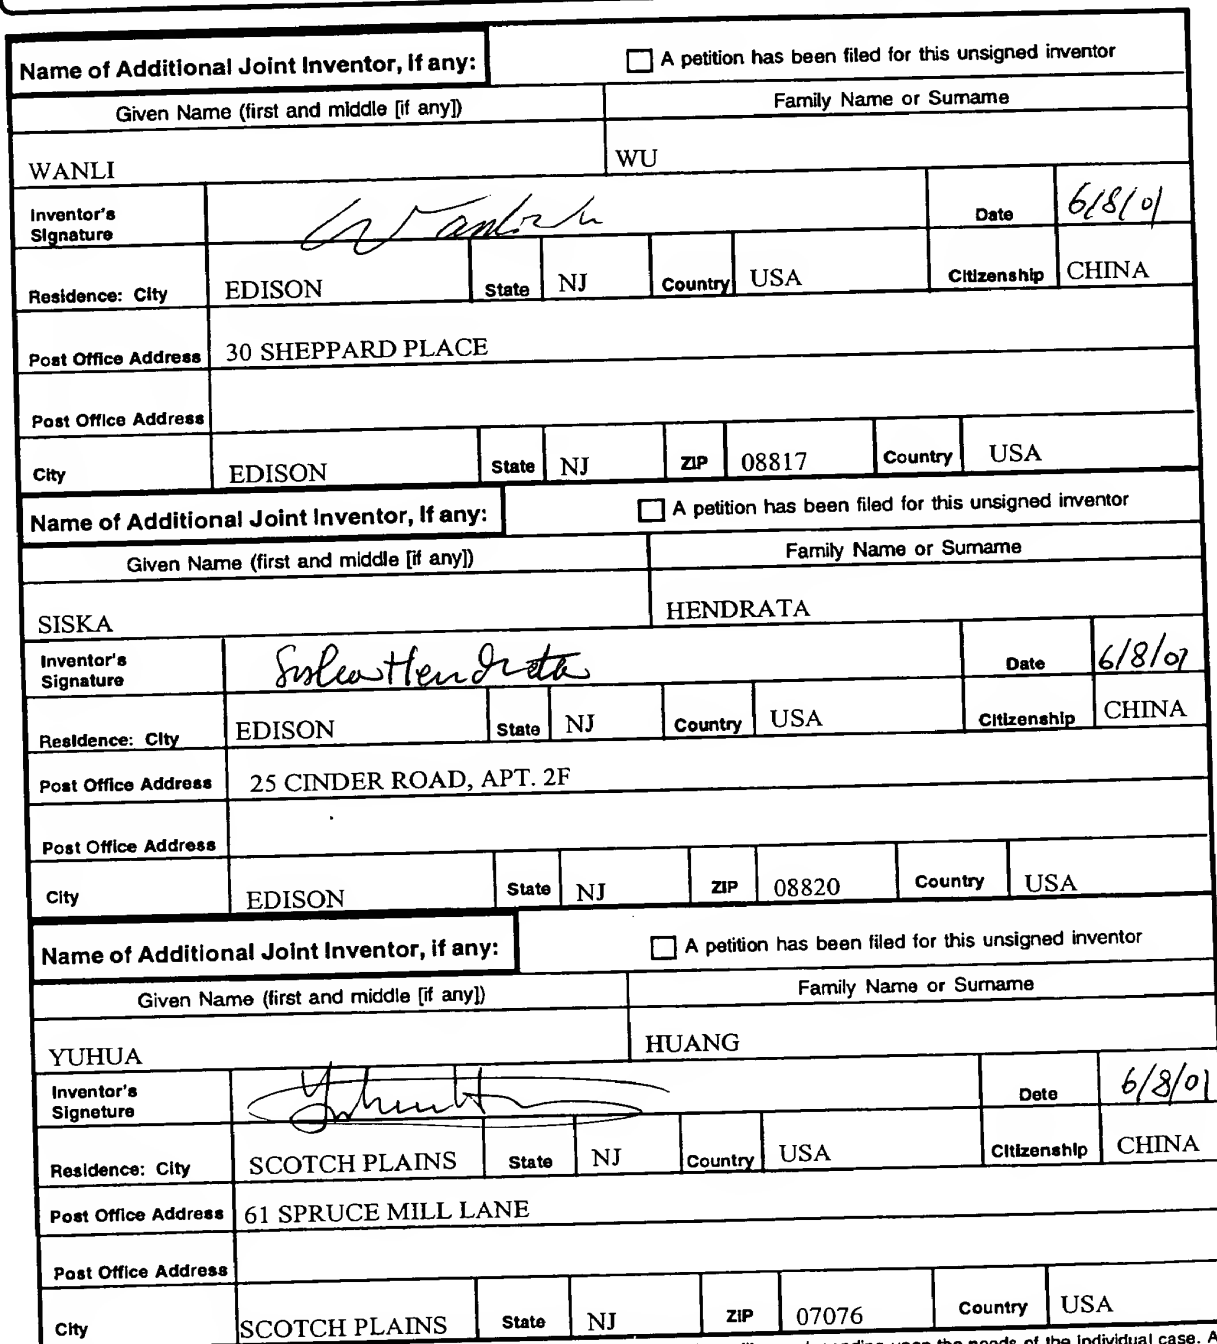 Name of Additional Joint Inventor, if any: A petition has been filed for this unsigned inventor
Given Name (first and middle [if any]) Family Name or Surname
WANLI WU
Inventor's Signature Date 6/8/01
Residence: City EDISON State NJ Country USA Citizenship CHINA
Post Office Address 30 SHEPPARD PLACE
Post Office Address
City EDISON State NJ ZIP 08817 Country USA
Name of Additional Joint Inventor, if any: A petition has been filed for this unsigned inventor
Given Name (first and middle [if any]) Family Name or Surname
SISKA HENDRATA
Inventor's Signature Siska Hendrata Date 6/8/01
Residence: City EDISON State NJ Country USA Citizenship CHINA
Post Office Address 25 CINDER ROAD, APT. 2F
Post Office Address
City EDISON State NJ ZIP 08820 Country USA
Name of Additional Joint Inventor, if any: A petition has been filed for this unsigned inventor
Given Name (first and middle [if any]) Family Name or Surname
YUHUA HUANG
Inventor's Signature Date 6/8/01
Residence: City SCOTCH PLAINS State NJ Country USA Citizenship CHINA
Post Office Address 61 SPRUCE MILL LANE
Post Office Address
City SCOTCH PLAINS State NJ ZIP 07076 Country USA
upon the needs of the individual case.